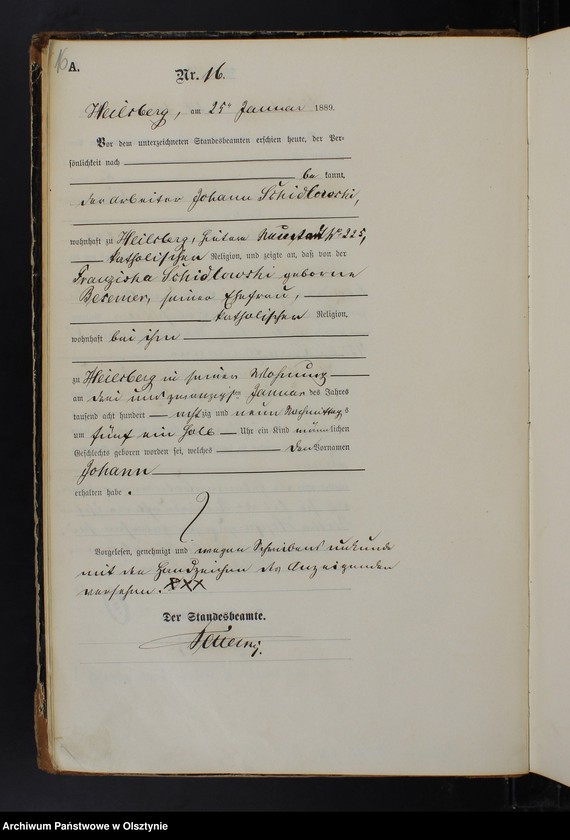 16
A.
Nr. 16.
Heilsberg, am 25ten Januar 1889.
Vor dem unterzeichneten Standesbeamten erschien heute, der Per-
sönlichkeit nach
be kannt,
der Arbeiter Johann Schidlowski,
wohnhaft zu Heilsberg, No 225,
katholischer Religion, und zeigte an, daß von der
Franziska Schidlowski geborene
seiner Ehefrau,
katholischer Religion,
wohnhaft bei ihm
zu Heilsberg in seiner Wohnung
am drei und zwanzigsten Januar des Jahres
tausend acht hundert achtzig und neun Nachmittags
um fünf ein halb Uhr ein Kind männlichen
Geschlechts geboren worden sei, welches den Vornamen
Johann
erhalten habe.
Vorgelesen, genehmigt und wegen Schreibensunkunde
mit den Handzeichen des Anzeigenden
versehen. XXX
Der Standesbeamte.
Archiwum Państwowe w Olsztynie